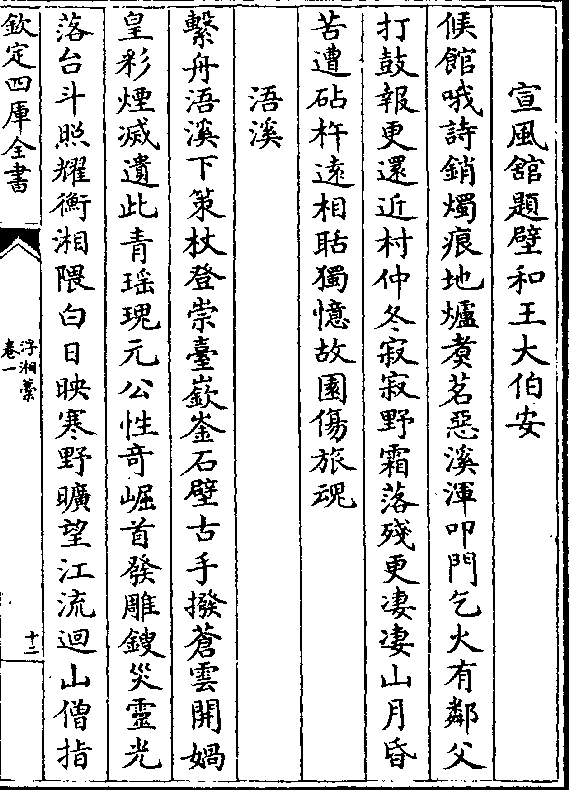 宣風舘題壁和王大伯安
候館哦詩銷燭痕地爐煑茗惡溪渾叩門乞火有鄰父
打鼓報更還近村仲冬寂寂野霜落殘更凄凄山月昏
苦遭砧杵遠相聒獨憶故園傷旅魂
浯溪
繫舟浯溪下策杖登崇臺嶔崟石壁古手撥蒼雲開媧
皇彩煙滅遺此青瑶瑰元公性奇崛首發雕鎪災靈光
落台斗照耀衡湘隈白日映寒野曠望江流迴山僧指
欽定四庫全書
浮湘藁
卷一
十二